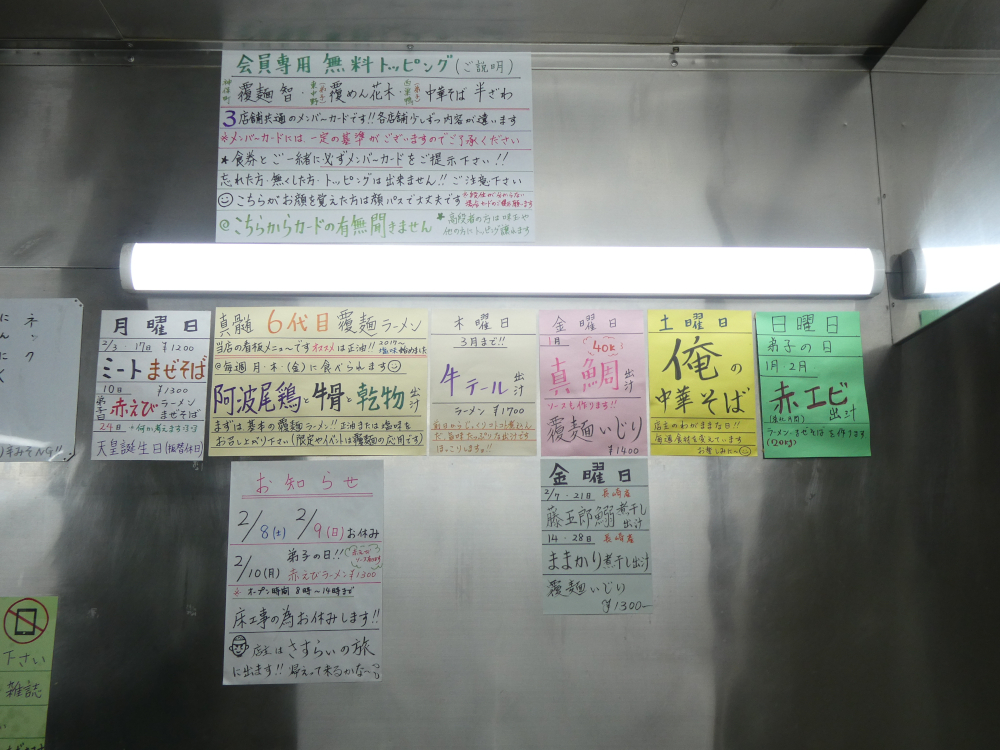 会員専用 無料トッピング(ご説明)
神保町 覆麺 智・東中野(弟子)覆めん花木・西巣鴨(弟子)中華そば 半ざわ
3店舗共通のメンバーカードです!!各店舗少しずつ内容が違います
※メンバーカードには、一定の基準がございますのでご了承ください
★食券とご一緒に必ずメンバーカードをご提示下さい!!
忘れた方・無くした方・トッピングは出来ません!! ご注意下さい
こちらがお顔を覚えた方は顔パスで大丈夫です
@こちらからカードの有無聞きません
★高段者の方は味玉や
他の方にトッピング譲れます
月曜日
2/3 17日 ¥1200
ミートまぜそば
10日 ¥1300
弟子の日 赤えび ラーメン
まぜそば
24日 +何か考えます
天皇誕生日(振替休日)
真髄 6代目 覆麺ラーメン
当店の看板メニューです オススメは正油!! 2017〜
塩味始めました
@毎週 月・木・(金)に食べられます
阿波尾鶏と牛骨と乾物 出汁
まずは基本の覆麺ラーメン!!正油または塩味を
お召し上がり下さい(限定やイベントは覆麺の応用です)
木曜日
3月まで!!
牛テール 出汁
ラーメン ¥1700
前日からじっくりコトコト煮込ん
だ、旨味たっぷりな出汁です
ほっこりしますヨ!!
金曜日
1月 40k!
真鯛 出汁
ソースも作ります!!
覆麺いじり
¥1400
土曜日
俺の
中華そば
店主のわがままな日!!
毎週食材を変えています
お楽しみに
日曜日
弟子の日
1月・2月
赤エビ 出汁
ラーメン・まぜそばを作ります
(20kg)
お知らせ
2/8(土) 2/9(日)お休み
弟子の日!!
2/10(月) 赤えびラーメン¥1300
※オープン時間 8時〜14時まで
床工事の為お休みします!!
店主はさすらいの旅
に出ます!! 帰って来るかな〜
金曜日
2/7・21日 長崎産
藤五郎鰯 煮干し出汁
14・28日 長崎産
ままかり煮干し出汁
覆麺いじり
¥1300-
下さい
雑誌